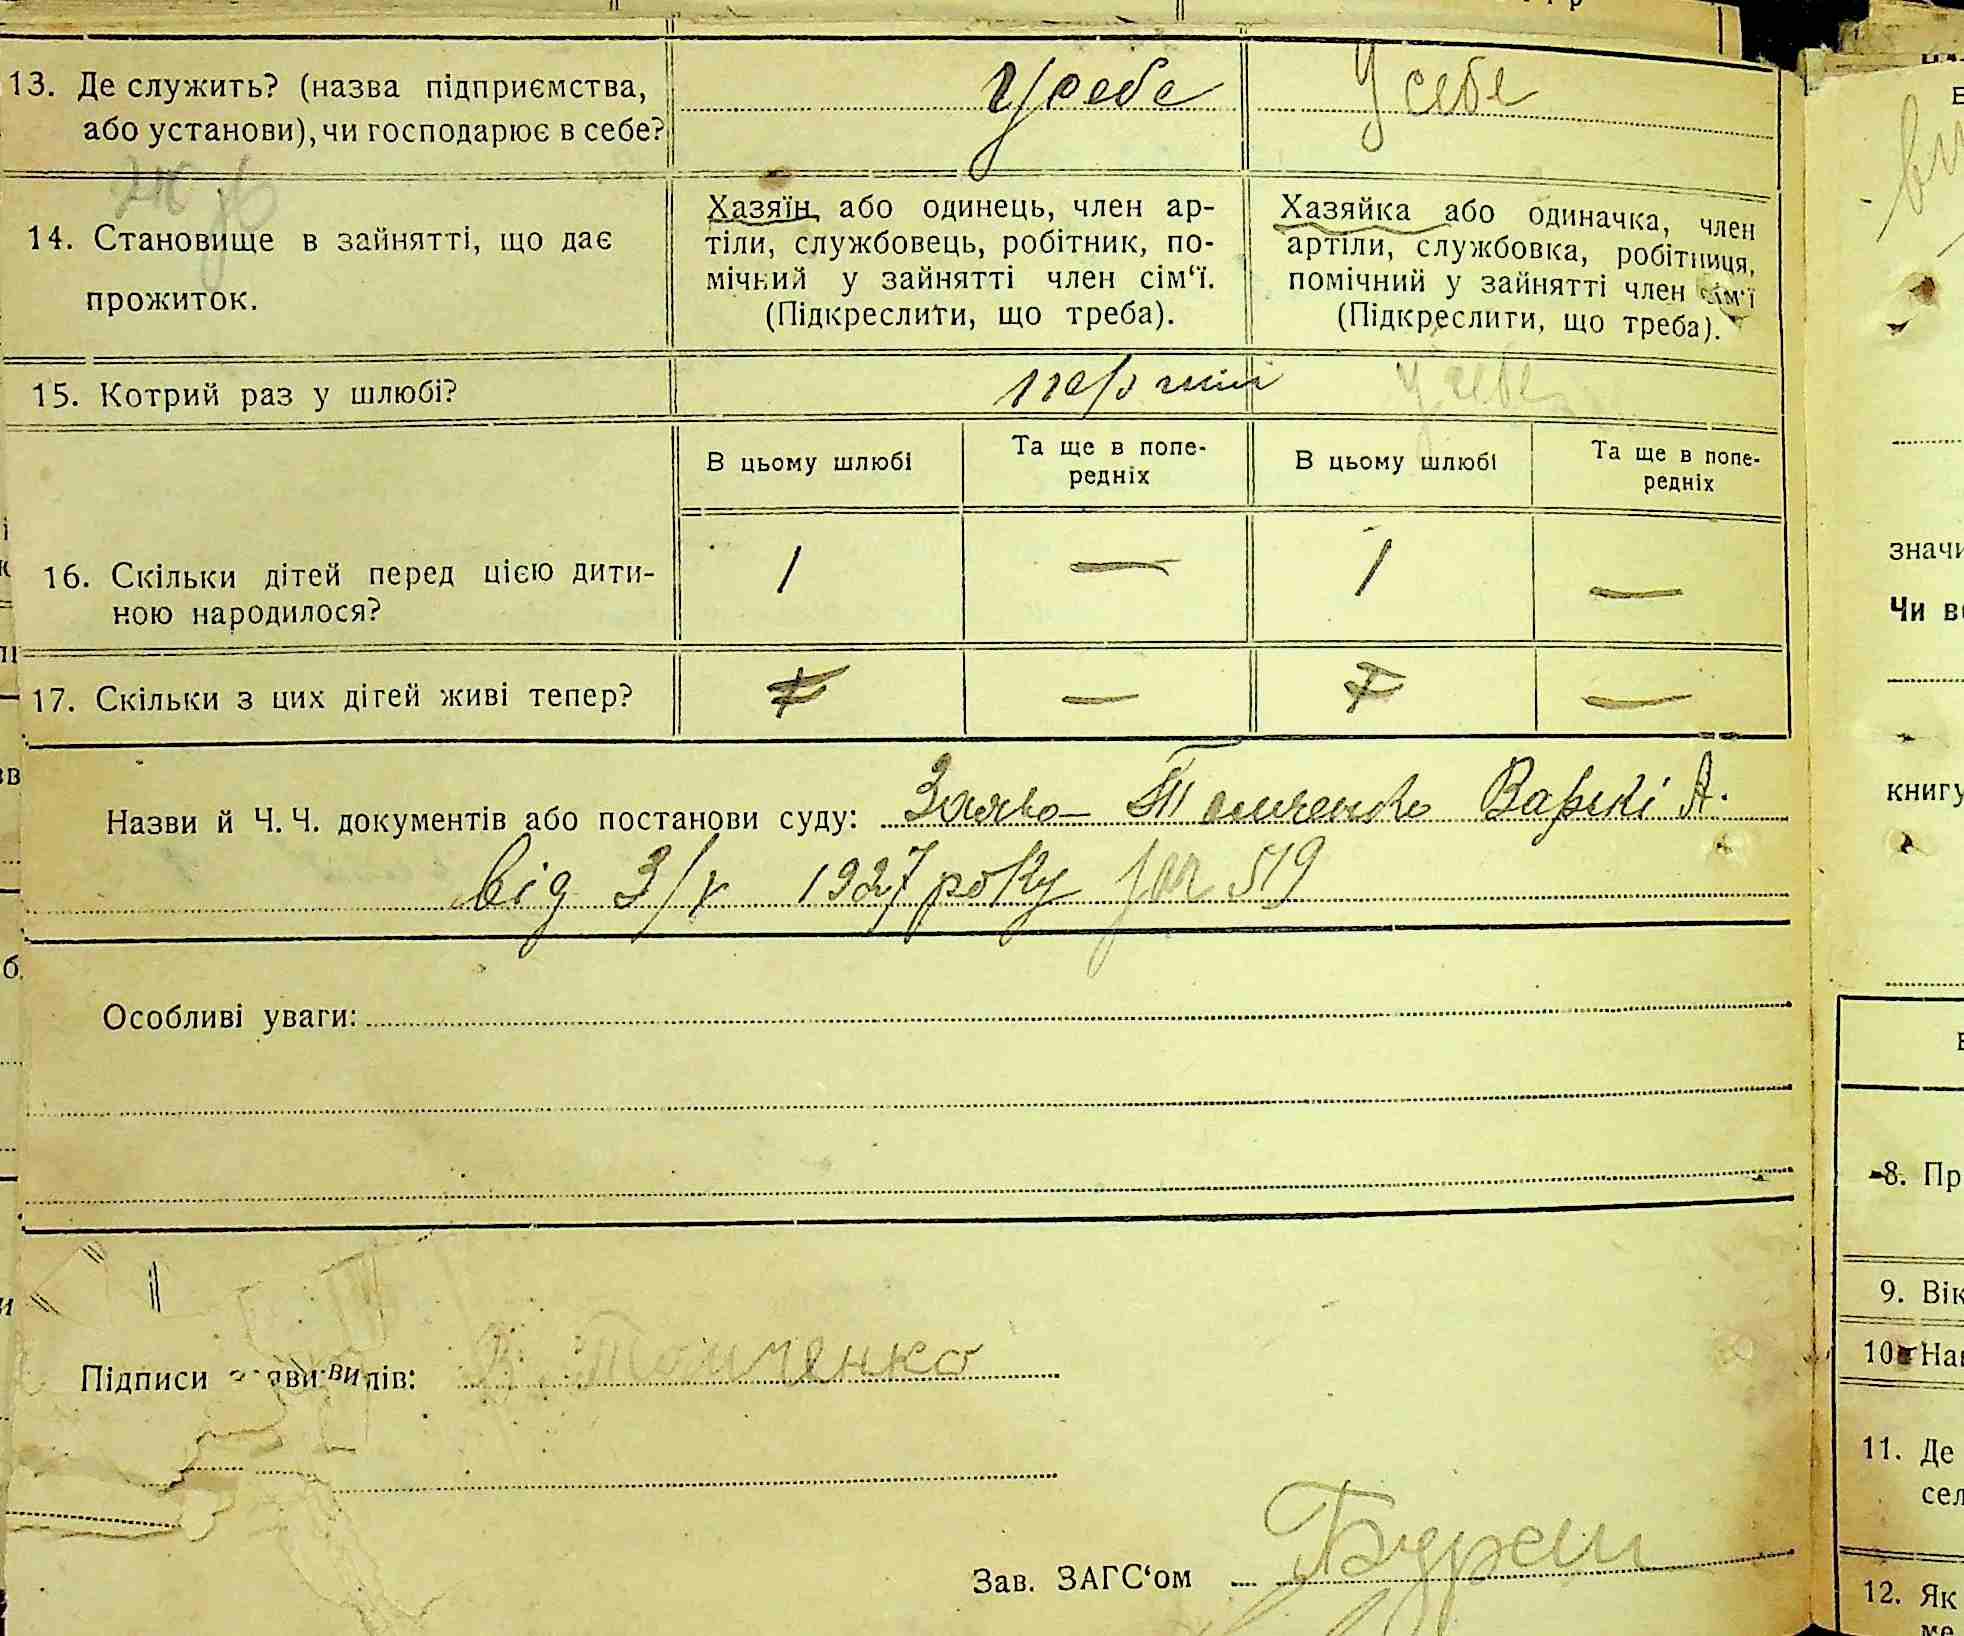 13. Де служить? (назва підприємства, або установи), чи господарює в себе?
у себе
у себе
14. Становище в зайнятті, що дає прожиток.
Хазяїн, або одинець, член ар-
тіли, службовець, робітник, по-
мічний у зайнятті член сім‘ї.
(Підкреслити, що треба).
Хазяйка або одиначка, член
артіли, службовка, робітниця,
помічний у зайнятті член сім‘ї
(Підкреслити, що треба).
15. Котрий раз у шлюбі?
у себе
В цьому шлюбі
Та ще в попе-
редніх
В цьому шлюбі
Та ще в попе-
редніх
16. Скільки дітей перед цією дити-
ною народилося?
1 — 1 —
17. Скільки з цих дітей живі тепер?
— —
Назви й Ч. Ч. документів або постанови суду: Заява Томченко Варки А.
від 3/V 1927 року за 519
Особливі уваги:
Підписи
В. Томченко
Зав. ЗАГС‘ом
значи
Чи в
книгу
8. Пр
9. Вік
10. На
11. Де
сел
12. Як